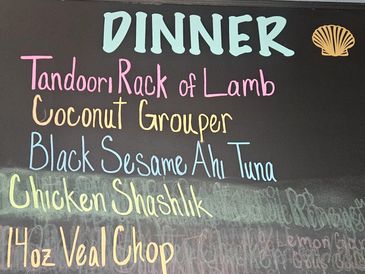 DINNER
Tandoori Rack of Lamb
Coconut Grouper
Black Sesame Ahi Tuna
Chicken Shashlik
14oz Veal Chop
Lemon